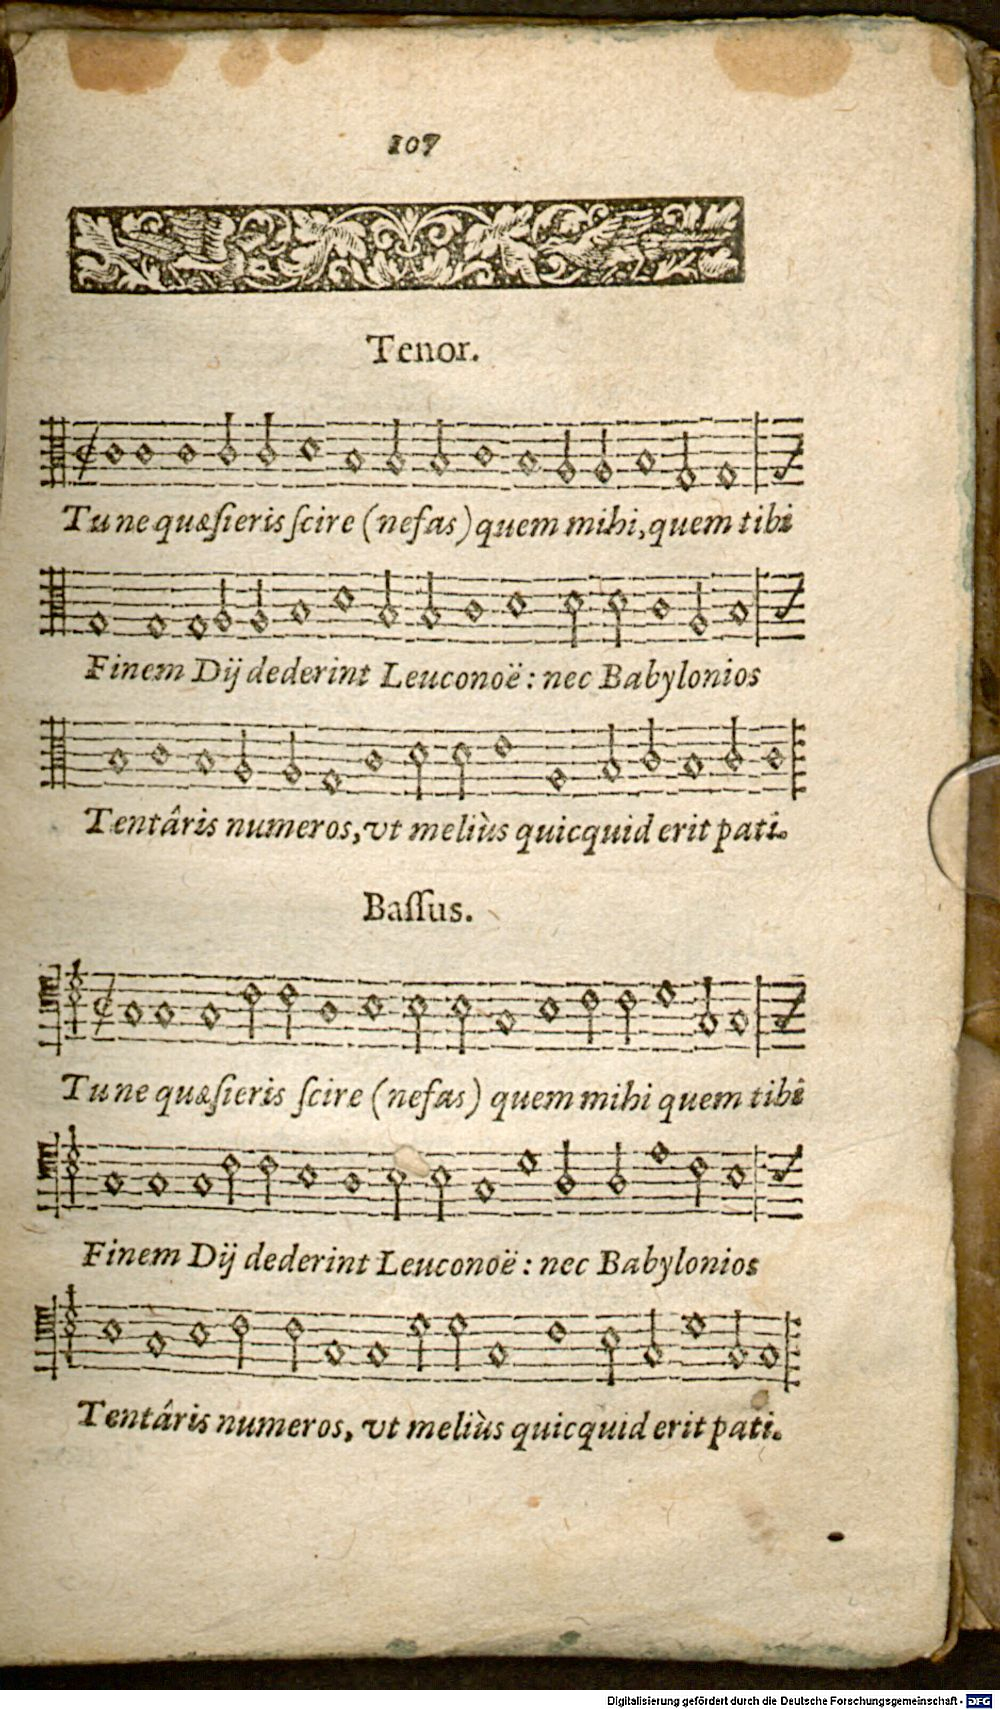 107
Tenor.
Tu ne quæſieris ſcire (nefas) quem mihi, quem tibi
Finem Dij dederint Leuconoë : nec Babylonios
Tentâris numeros, vt meliùs quicquid erit pati.
Baſſus.
Tu ne quæſieris ſcire (nefas) quem mihi quem tibi
Finem Dij dederint Leuconoë : nec Babylonios
Tentâris numeros, vt meliùs quicquid erit pati.
Digitalisierung gefördert durch die Deutsche Forschungsgemeinschaft - DFG